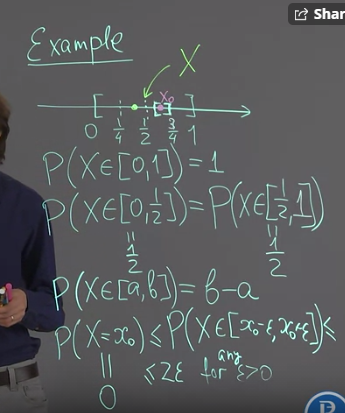 Share
Example
X
x₀
0 1/4 1/2 3/4 1
P(X∈[0,1])=1
P(X∈[0,1/2])=P(X∈[1/2,1])
=
=
1/2
1/2
P(X∈[a,b])=b-a
P(X=x₀)≤P(X∈[x₀-ε,x₀+ε])≤
=
≤2ε for any ε>0
0